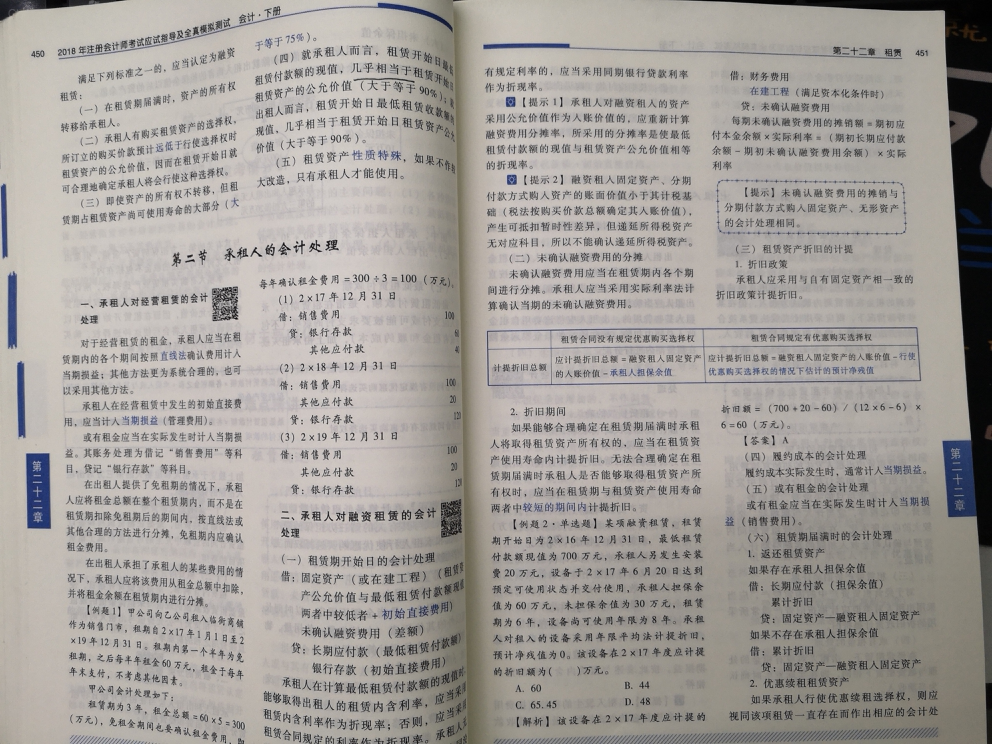 450
2018年注册会计师考试应试指导及全真模拟测试 会计·下册
满足下列标准之一的，应当认定为融资
租赁：
（一）在租赁期届满时，资产的所有权
转移给承租人。
（二）承租人有购买租赁资产的选择权，
所订立的购买价款预计远低于行使选择权时
租赁资产的公允价值，因而在租赁开始日就
可合理地确定承租人将会行使这种选择权。
（三）即使资产的所有权不转移，但租
赁期占租赁资产尚可使用寿命的大部分（大
于等于75%）。
（四）就承租人而言，租赁开始日最低
租赁付款额的现值，几乎相当于租赁开始日
租赁资产的公允价值（大于等于90%）；就
出租人而言，租赁开始日最低租赁收款额的
现值，几乎相当于租赁开始日租赁资产公允
价值（大于等于90%）。
（五）租赁资产性质特殊，如果不作较
大改造，只有承租人才能使用。
第二节 承租人的会计处理
一、承租人对经营租赁的会计
处理
对于经营租赁的租金，承租人应当在租
赁期内的各个期间按照直线法确认费用计入
当期损益；其他方法更为系统合理的，也可
以采用其他方法。
承租人在经营租赁中发生的初始直接费
用，应当计入当期损益（管理费用）。
或有租金应当在实际发生时计入当期损
益。其账务处理为借记“销售费用”等科
目，贷记“银行存款”等科目。
在出租人提供了免租期的情况下，承租
人应将租金总额在整个租赁期内，而不是在
租赁期扣除免租期后的期间内，按直线法或
其他合理的方法进行分摊，免租期内应确认
租金费用。
在出租人承担了承租人的某些费用的情
况下，承租人应将该费用从租金总额中扣除，
并将租金余额在租赁期内进行分摊。
【例题1】甲公司向乙公司租入临街商铺
作为销售门市，租期自2×17年1月1日至2
×19年12月31日。租期内第一个半年为免
租期，之后每半年租金60万元，租金于每年
年末支付，不考虑其他因素。
甲公司会计处理如下：
租赁期为3年，租金总额=60×5=300
（万元），免租金期间也要确认租金费用，即
每年确认租金费用=300÷3=100（万元）。
（1）2×17年12月31日
借：销售费用 100
贷：银行存款 60
其他应付款 40
（2）2×18年12月31日
借：销售费用 100
其他应付款 20
贷：银行存款 120
（3）2×19年12月31日
借：销售费用 100
其他应付款 20
贷：银行存款 120
二、承租人对融资租赁的会计
处理
（一）租赁期开始日的会计处理
借：固定资产（或在建工程）（租赁资
产公允价值与最低租赁付款额现值
两者中较低者+初始直接费用）
未确认融资费用（差额）
贷：长期应付款（最低租赁付款额）
银行存款（初始直接费用）
承租人在计算最低租赁付款额的现值时，
能够取得出租人的租赁内含利率，应当采用
租赁内含利率作为折现率；否则，应当采用
租赁合同规定的利率作为折现率。承租人
第二十二章
第二十二章 租赁
451
有规定利率的，应当采用同期银行贷款利率
作为折现率。
【提示1】承租人对融资租入的资产
采用公允价值作为入账价值的，应重新计算
融资费用分摊率，所采用的分摊率是使最低
租赁付款额的现值与租赁资产公允价值相等
的折现率。
【提示2】融资租入固定资产、分期
付款方式购入资产的账面价值小于其计税基
础（税法按购买价款总额确定其入账价值），
产生可抵扣暂时性差异，但递延所得税资产
无对应科目，所以不能确认递延所得税资产。
（二）未确认融资费用的分摊
未确认融资费用应当在租赁期内各个期
间进行分摊。承租人应当采用实际利率法计
算确认当期的未确认融资费用。
借：财务费用
在建工程（满足资本化条件时）
贷：未确认融资费用
每期未确认融资费用的摊销额=期初应
付本金余额×实际利率=（期初长期应付款
余额-期初未确认融资费用余额）×实际
利率
【提示】未确认融资费用的摊销与
分期付款方式购入固定资产、无形资产
的会计处理相同。
（三）租赁资产折旧的计提
1. 折旧政策
承租人应采用与自有固定资产相一致的
折旧政策计提折旧。
租赁合同没有规定优惠购买选择权
租赁合同规定有优惠购买选择权
计提折旧总额
应计提折旧总额=融资租入固定资产
的入账价值-承租人担保余值
应计提折旧总额=融资租入固定资产的入账价值-行使
优惠购买选择权的情况下估计的预计净残值
2. 折旧期间
如果能够合理确定在租赁期届满时承租
人将取得租赁资产所有权的，应当在租赁资
产使用寿命内计提折旧。无法合理确定在租
赁期届满时承租人是否能够取得租赁资产所
有权时，应当在租赁期与租赁资产使用寿命
两者中较短的期间内计提折旧。
【例题2·单选题】某项融资租赁，租赁
期开始日为2×16年12月31日，最低租赁
付款额现值为700万元，承租人另发生安装
费20万元，设备于2×17年6月20日达到
预定可使用状态并交付使用，承租人担保余
值为60万元，未担保余值为30万元，租赁
期为6年，设备尚可使用年限为8年。承租
人对租入的设备采用年限平均法计提折旧，
预计净残值为0。该设备在2×17年度应计提
的折旧额为（ ）万元。
A. 60 B. 44
C. 65.45 D. 48
【解析】该设备在2×17年度应计提的
折旧额=（700+20-60）/（12×6-6）×
6=60（万元）。
【答案】A
（四）履约成本的会计处理
履约成本实际发生时，通常计入当期损益。
（五）或有租金的会计处理
或有租金应当在实际发生时计入当期损
益（销售费用）。
（六）租赁期届满时的会计处理
1. 返还租赁资产
如果存在承租人担保余值
借：长期应付款（担保余值）
累计折旧
贷：固定资产—融资租入固定资产
如果不存在承租人担保余值
借：累计折旧
贷：固定资产—融资租入固定资产
2. 优惠续租租赁资产
如果承租人行使优惠续租选择权，则应
视同该项租赁一直存在而作出相应的会计处
第二十二章